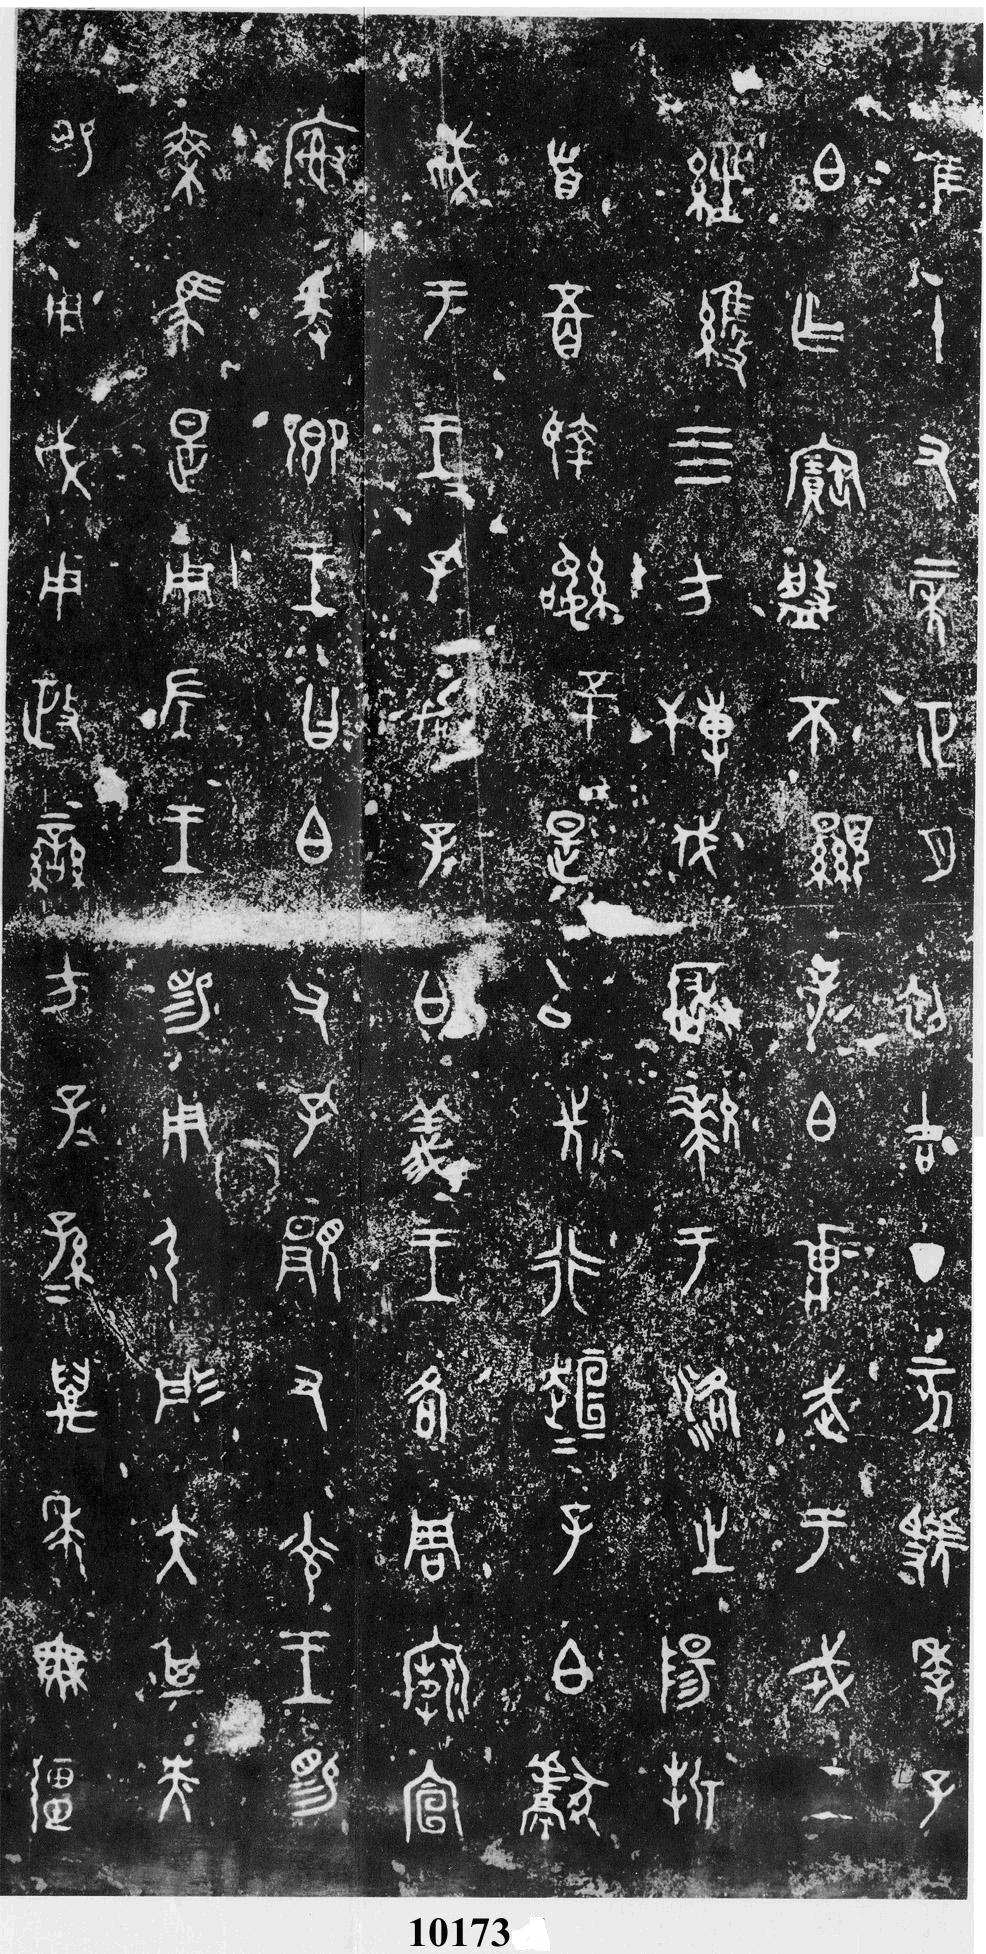 隹十又二年正月初吉丁亥虢季子
白乍寶盤不顯子白𤕌武于戎工
經維四方搏伐玁狁于洛之陽折
首五百執訊五十是以先行桓=子白獻
馘于王=孔加子白義王各周廟宣
廟爰鄉王曰白父孔顯又光王睗
乘馬是用左王睗用弓彤矢其央
睗用戉用政蠻方子=孫=萬年無疆
10173